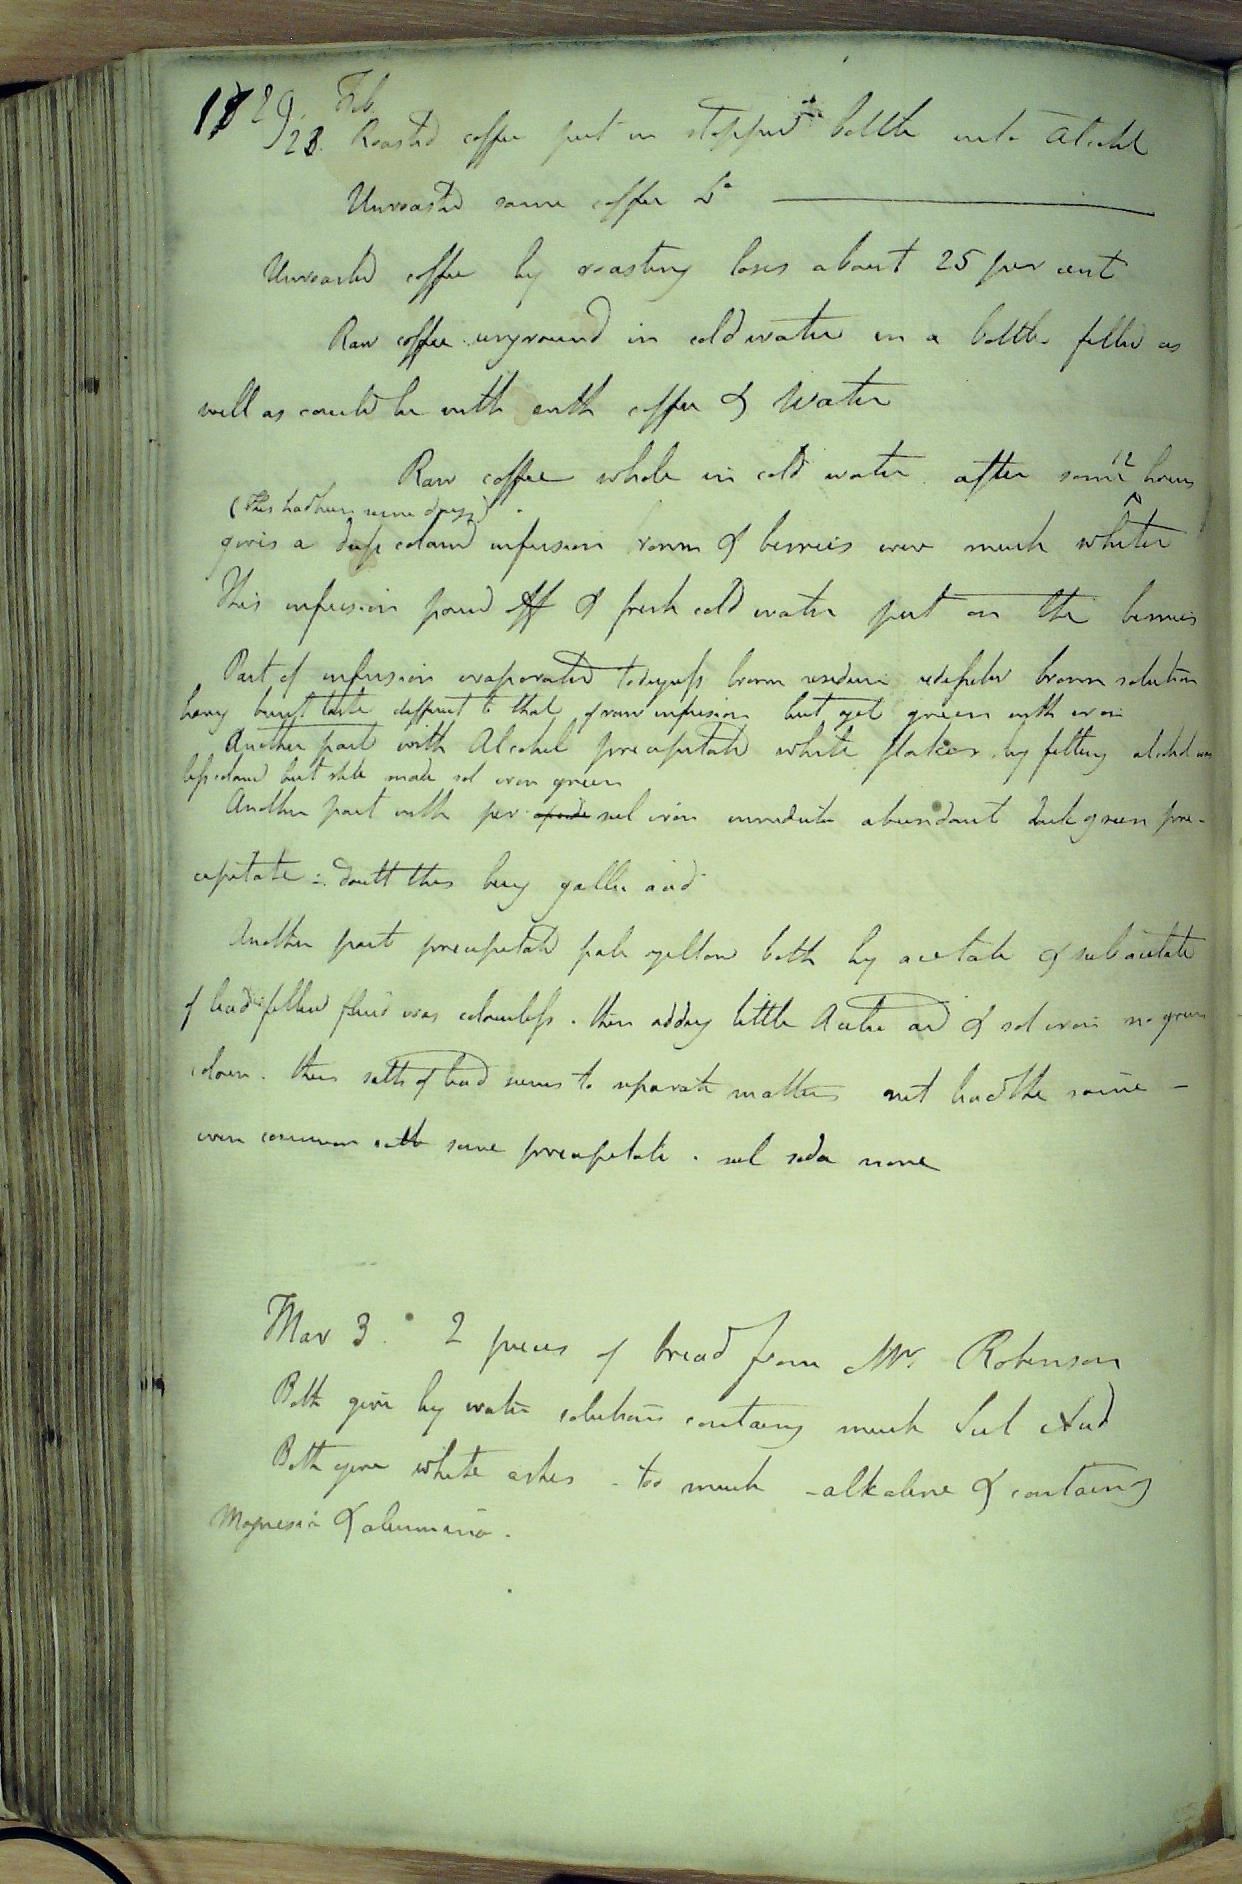 1829. Feb.
28. Roasted coffee put in stopped bottle with Alcohol
Unroasted same coffee Do
Unroasted coffee by roasting loses about 25 per cent
Raw coffee unground in cold water in a bottle filled as
well as could be with with coffee & Water
Raw coffee whole in cold water after some 12 hours
(This had been
gives a deep colourd infusion & berries were much whiter
This infusion pourd off & fresh cold water put on the berries
Part of infusion evaporated to dryness brown residue redissolved brown solution
having burnt taste different to that of raw infusion but yet green with iron
Another part with Alcohol precipitated white flakes, by filtering alcohol was
less colourd but still made sol iron green
Another part with per oxide sul iron immediate abundant dark green pre-
cipitate ∴ doubt this being gallic acid
Another part precipitated pale yellow both by acetate & subacetate
of lead. filtered fluid was colourless. then adding little Acetic acid & sol iron no green
colour. thus salts of lead seems to separate matters not lead the same -
even common salt some precipitate. sul soda none
Mar 3. 2 pieces of bread from Mr. Robinson
Both give by water solutions containing much Sul Acid
Both gave white ashes - too much - alkaline & containing
Magnesia & alumina.